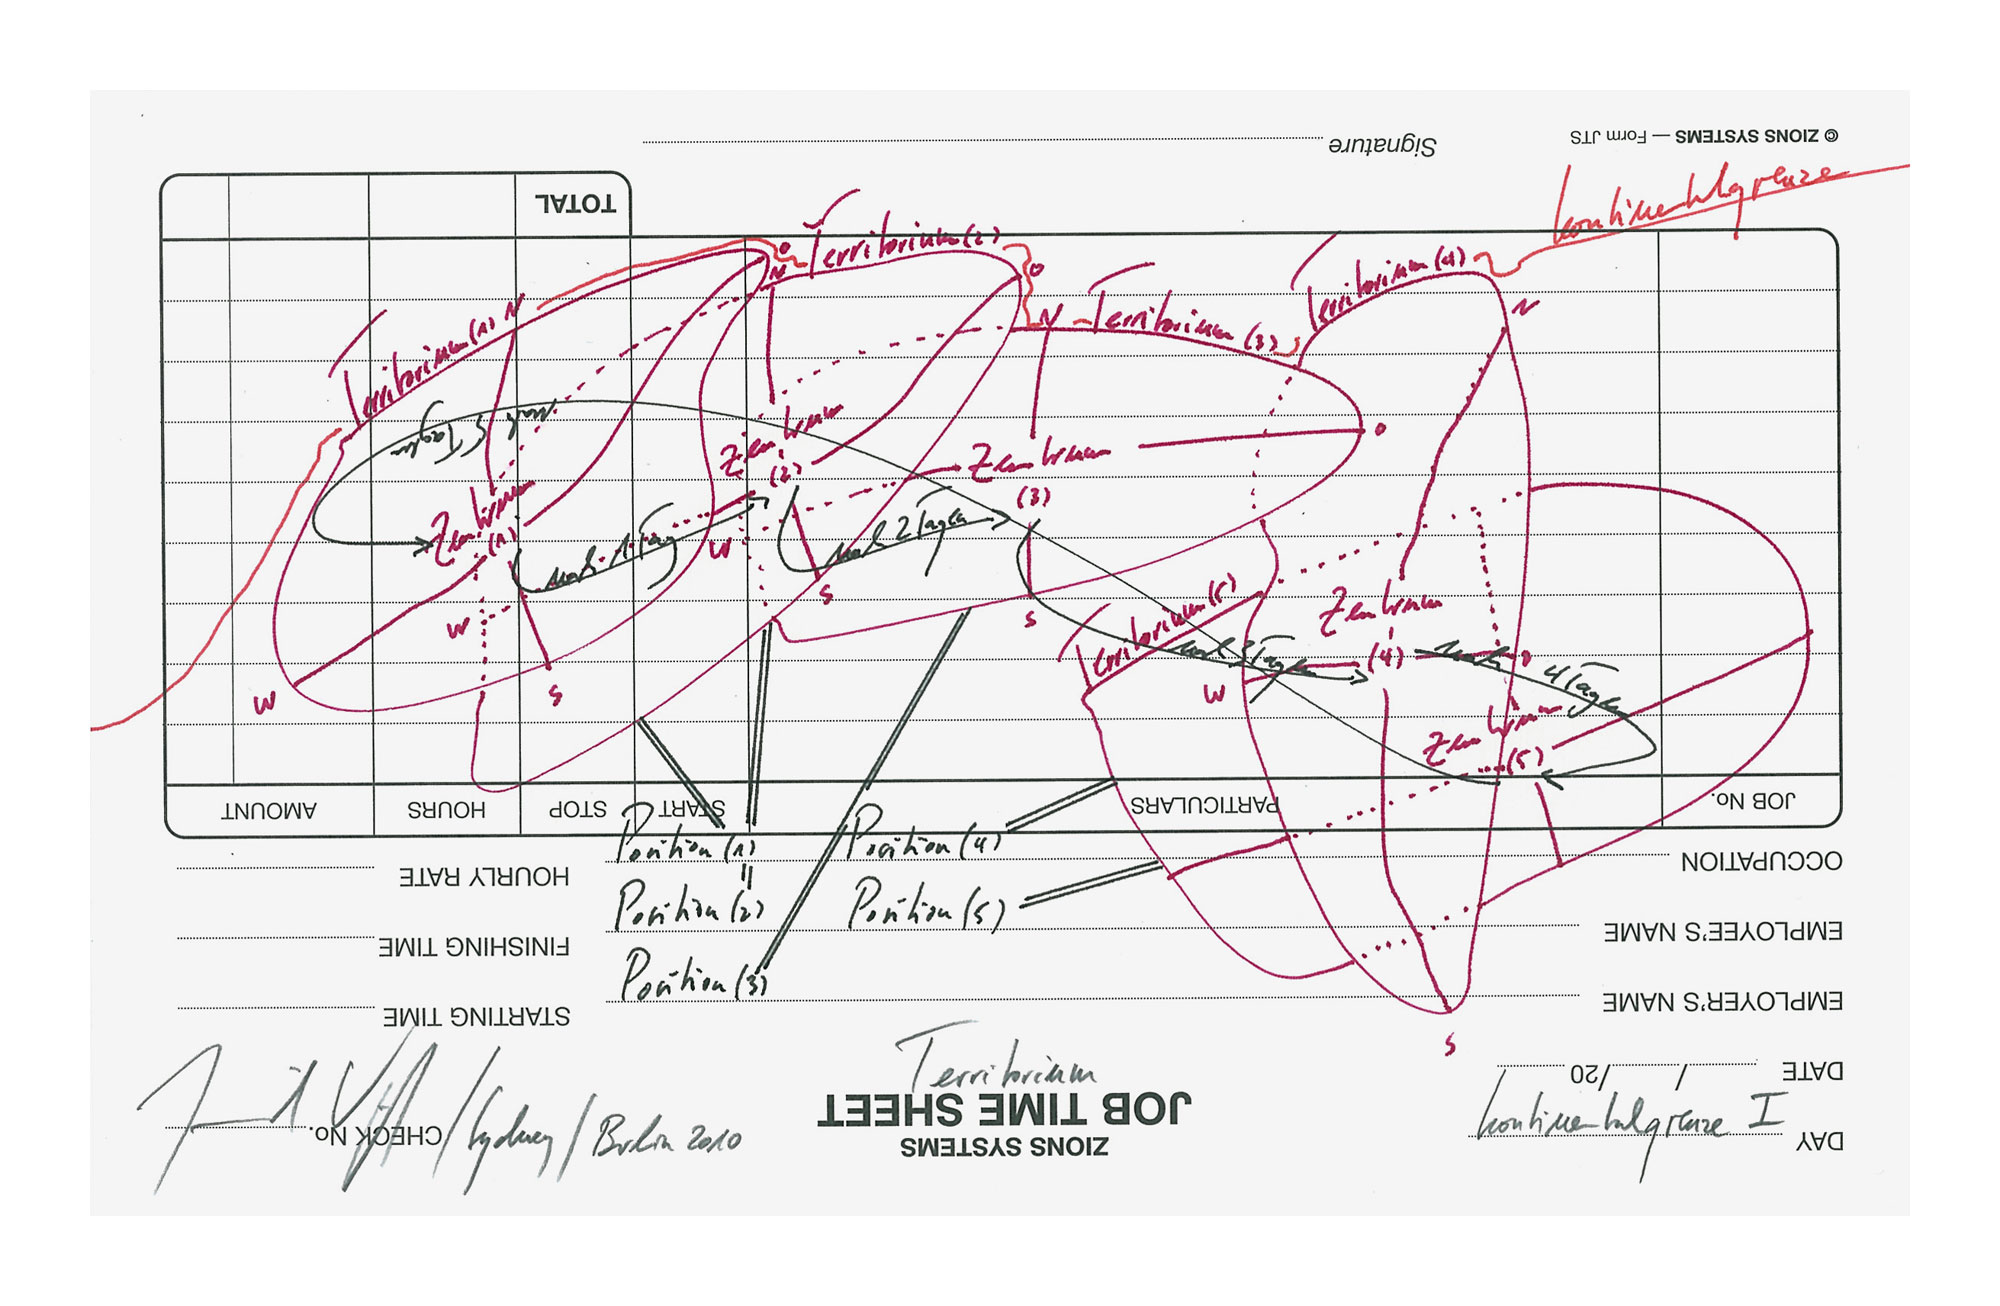 © ZIONS SYSTEMS — Form JTS
Signature
Kontinentalgrenze
TOTAL
Territorium (2)
O
N
O
Territorium (4)
N
Territorium (1) N
N
Territorium (3)
O
nach 5 Tagen
Zentrum
(2)
Zentrum
(3)
Zentrum
(1)
nach 1 Tag
W
nach 2 Tagen
S
S
W
Territorium (5)
Zentrum
(4)
nach 3 Tagen
nach 4 Tagen
O
W
S
W
Zentrum
(5)
AMOUNT
HOURS
STOP
START
PARTICULARS
JOB No.
Position (1)
Position (4)
HOURLY RATE
OCCUPATION
Position (2)
Position (5)
FINISHING TIME
EMPLOYEE'S NAME
Position (3)
STARTING TIME
EMPLOYER'S NAME
S
Territorium
DATE / /20
JOB TIME SHEET
Kontinentalgrenze I
CHECK No.
/Sydney/Berlin 2010
ZIONS SYSTEMS
DAY